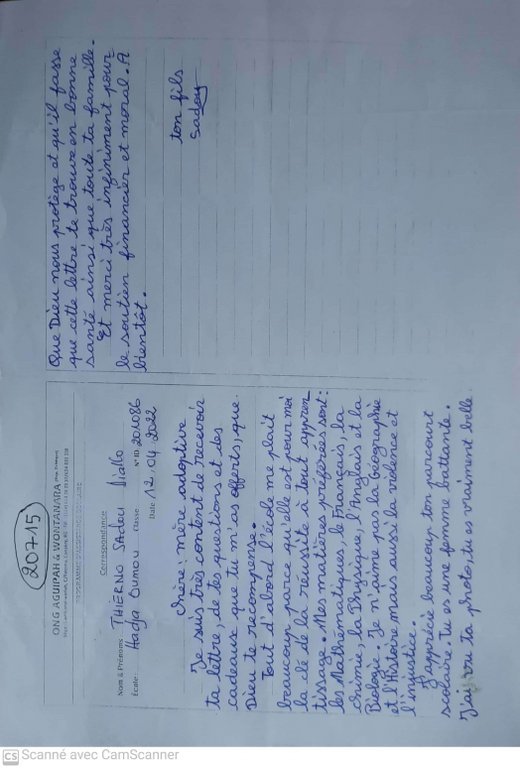 20715
ONG AGUIPAH & WONTANARA
Correspondance
Nom & Prénoms THIERNO SAdou Diallo
École: Hadja Oumou Classe N° ID 201086
Date 12.04.2022
Chère : mère adoptive
Je suis très content de recevoir
ta lettre, de tes questions et des
cadeaux que tu m'as offerts, que
Dieu te recompense.
Tout d'abord l'école me plait
beaucoup parce qu'elle est pour moi
la clé de la réussite à tout appren
tissage. Mes matières préférées sont :
les Mathématiques, le Français, la
chimie, la Physique, l'Anglais et la
Biologie. Je n'aime pas la Géographie
et l'Histoire mais aussi la violence et
l'injustice.
J'apprécie beaucoup ton parcourt
scolaire. Tu es une femme battante.
J'ai vu ta photo, tu es vraiment belle.
Que Dieu nous protège et qu'il fasse
que cette lettre te trouve en bonne
santé ainsi que toute ta famille.
Et merci très infiniment pour
le soutien financier et moral. A
bientôt.
ton fils
Sadou
CS Scanné avec CamScanner